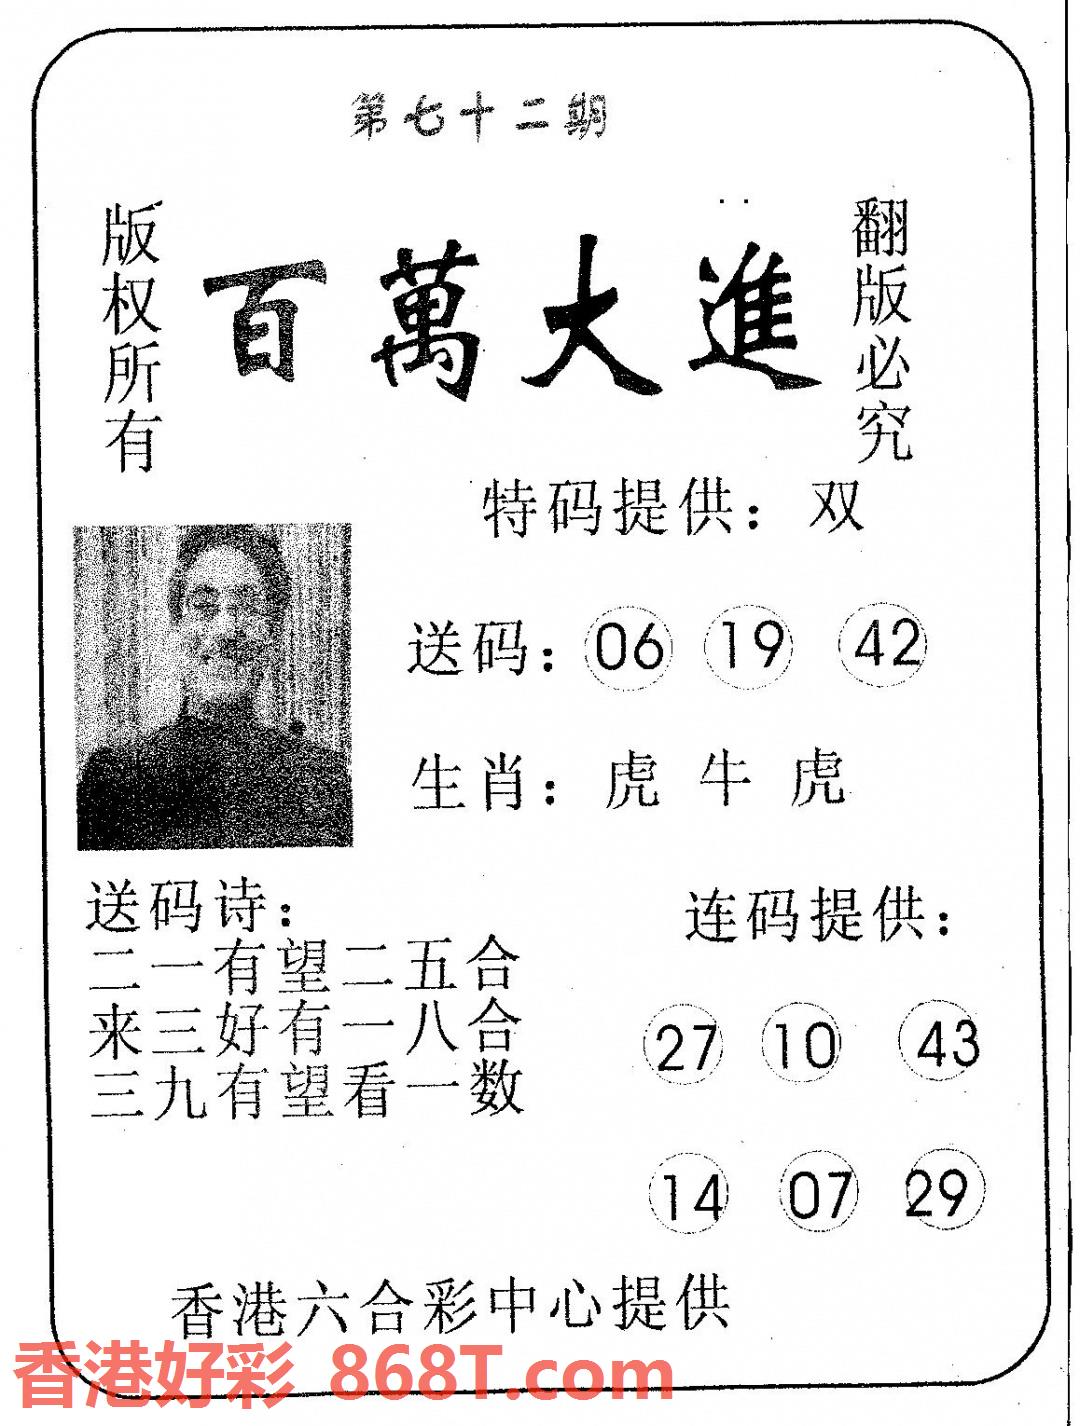 第七十二期
版权所有
百萬大進
翻版必究
特码提供：双
送码：06 19 42
生肖：虎 牛 虎
送码诗：
二一有望二五合
来三好有一八合
三九有望看一数
连码提供：
27 10 43
14 07 29
香港六合彩中心提供
香港好彩 868T.com